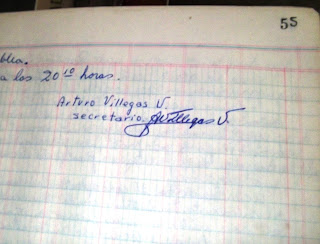 55
blea.
a las 20 10 horas.
Arturo Villegas V.
secretario. AVillegas V.